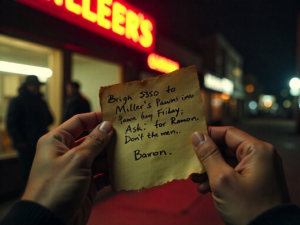 MELLER'S
Brigh $350 to
Miller's
Friday.
Ask: for Ramon.
Don't the men..
Baron.